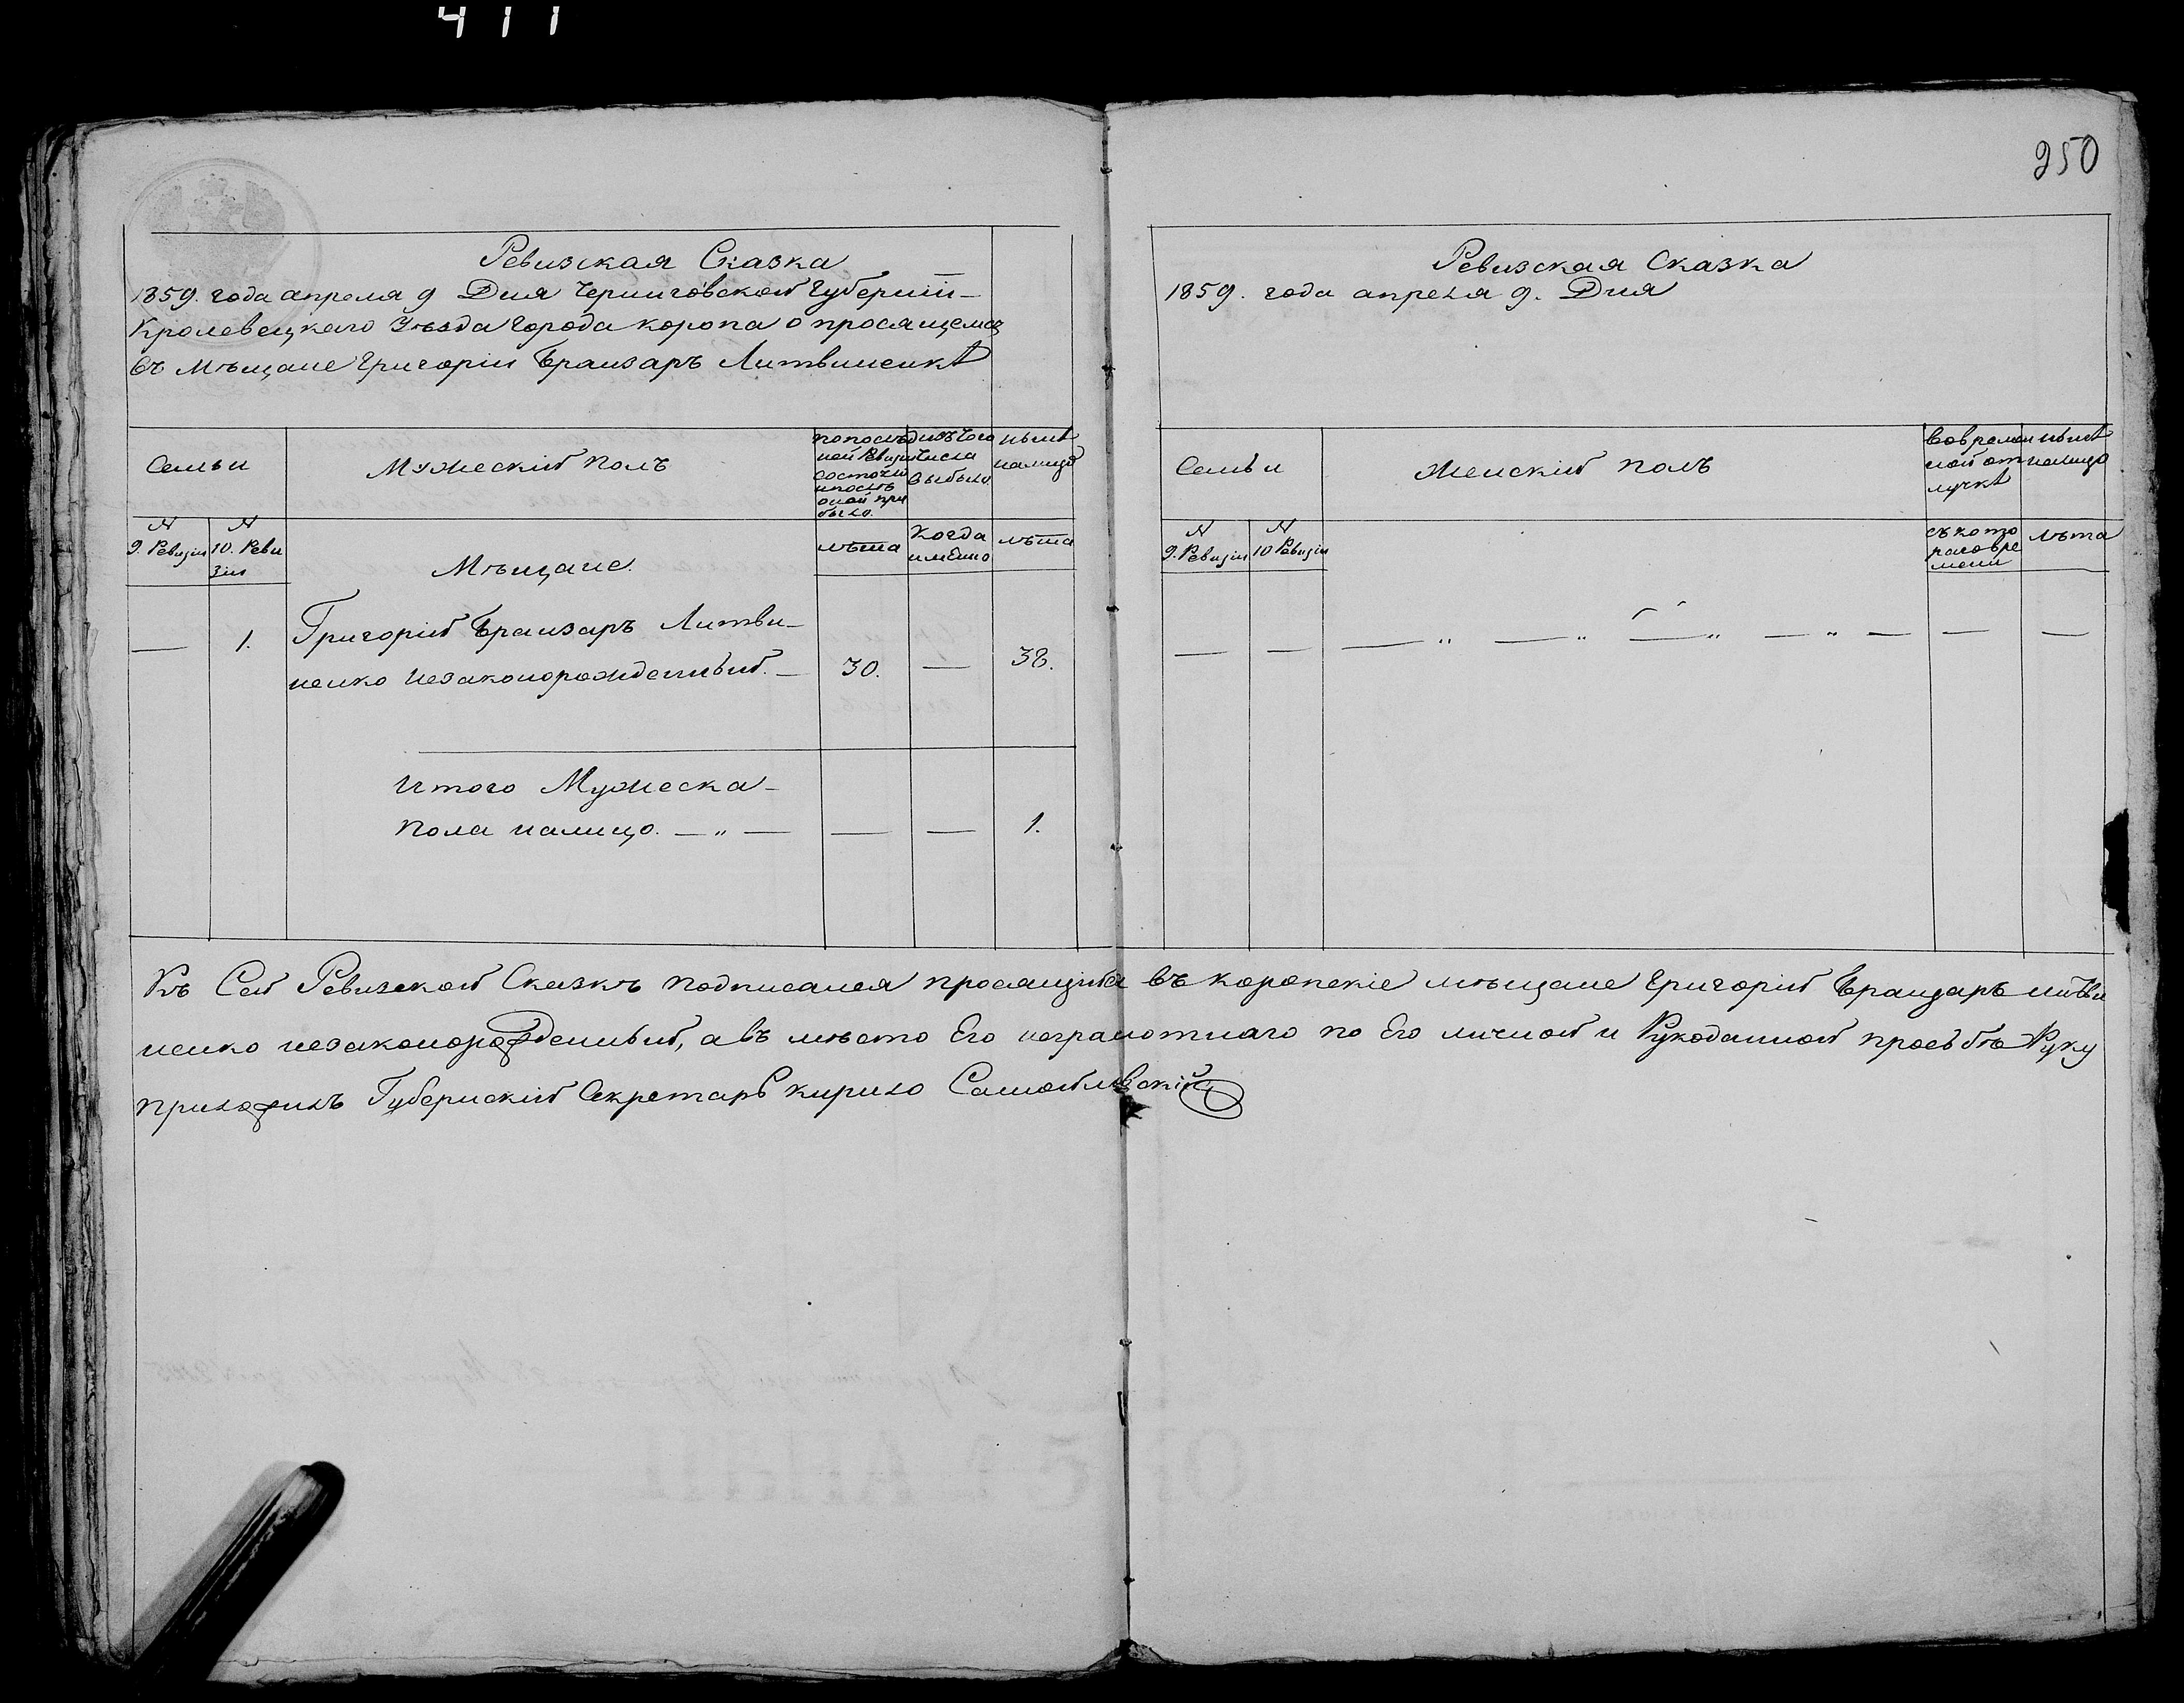 411
250
Ревизская Сказка
1859. года апреля 9 Дня Черниговской Губерніи
Кролевецкаго Уѣзда города коропа о просящемся
въ мѣщане Григоріи Бранзаръ Литвиненкѣ
Семьи
Мужескій полъ
по послѣд
ней Ревизіи
состояло
и послѣ
оной при
было.
изъ того
числа
выбыло
нынѣ
налицо
№
9. Ревизіи
№
10. Реви
зіи
Мѣщане.
лѣта
Когда
имѣнно
лѣта
— 1. Григорій Бранзаръ Литви-
ненко незаконорожденный. — 30. — 38.
Итого Мужеска-
Пола налицо. — „ — — — 1.
Ревизская Сказка
1859. года апреля 9. Дня
Семьи
Женскій полъ
во времен
ной от
лучкѣ
нынѣ
налицо
№
9. Ревизіи
№
10 Ревизіи
съ кото
раго вре
мени
лѣта
— — — „ — „ — „ — „ — — —
Къ Сей Ревизской Сказкѣ подписался просящійся въ коропскіе мѣщане Григорій Бранзаръ Литви
ненко незаконорожденный, а въ мѣсто Его неграмотнаго по Его личной и Рукоданной прозьбѣ Руку
приложилъ Губернскій Секретарь Кирило